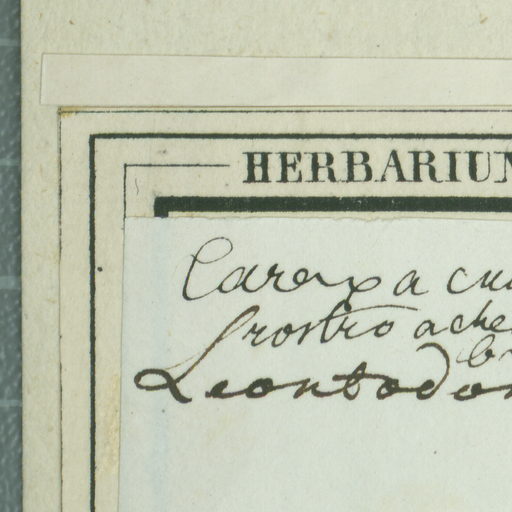 HERBARIUM
Carex a cu
rostro ache
Leontodon